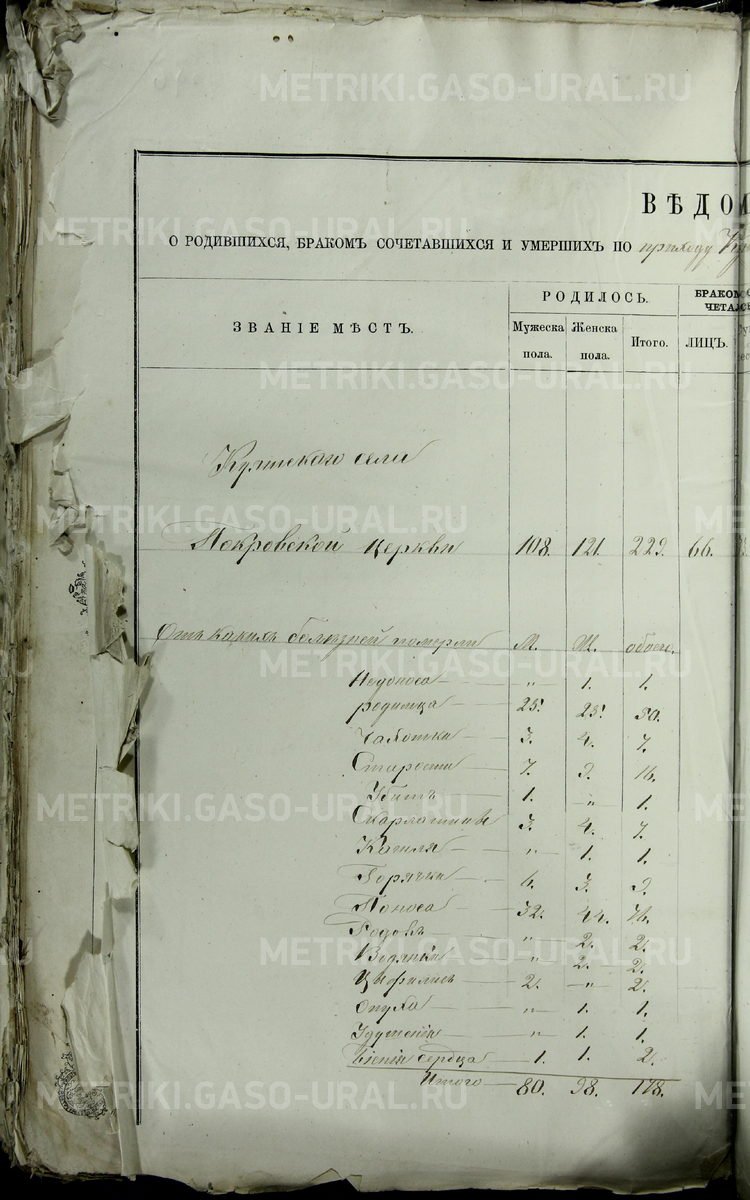 ВѢДОМ
О РОДИВШИХСЯ, БРАКОМЪ СОЧЕТАВШИХСЯ И УМЕРШИХЪ ПО приходу
ЗВАНІЕ МѢСТЪ.
РОДИЛОСЬ.
Мужеска пола.
Женска пола.
Итого.
БРАКОМЪ СО
ЧЕТАЛСЬ
ЛИЦЪ.
села
Покровской церкви 108. 121. 229. 66.
Отъ какихъ болѣзней померли М. Ж. обоег.
Недоноса — " 1. 1.
родимца — 25. 25. 50.
Чахотки — 3. 4. 7.
Старости — 7. 9. 16.
Убитъ — 1. " 1.
Скарлатины 3. 4. 7.
Кашля — " 1. 1.
Горячки — 6. 3. 9.
Поноса — 32. 44. 76.
Родовъ — " 2. 2.
Водянки — " 2. 2.
Цыфилисъ — 2. " 2.
Опуха — " 1. 1.
Удушенія — " 1. 1.
біенія сердца — 1. 1. 2.
Итого — 80. 98. 178.
METRIKI.GASO-URAL.RU